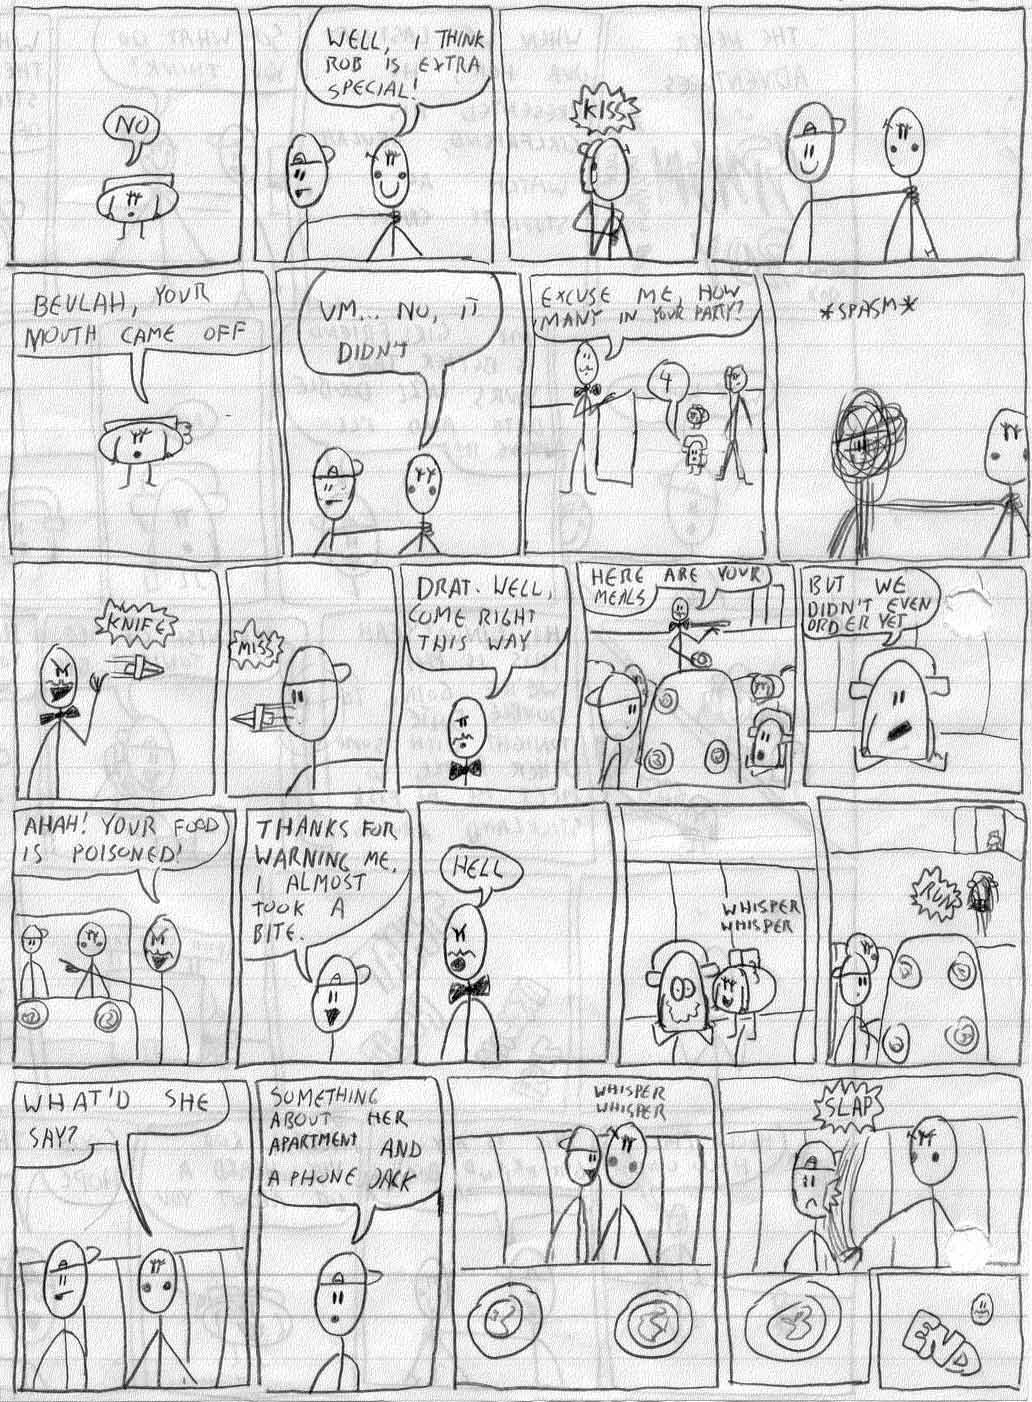 NO
WELL, I THINK
ROB IS EXTRA
SPECIAL!
KISS
BEULAH, YOUR
MOUTH CAME OFF
UM... NO, IT
DIDN'T
EXCUSE ME, HOW
MANY IN YOUR PARTY?
4
*SPASM*
KNIFE
MISS
DRAT. WELL,
COME RIGHT
THIS WAY
HERE ARE YOUR
MEALS
BUT WE
DIDN'T EVEN
ORDER YET
AHAH! YOUR FOOD
IS POISONED!
THANKS FOR
WARNING ME.
I ALMOST
TOOK A
BITE.
HELL
WHISPER
WHISPER
RUN
WHAT'D SHE
SAY?
SOMETHING
ABOUT HER
APARTMENT AND
A PHONE JACK
WHISPER
WHISPER
SLAP
END